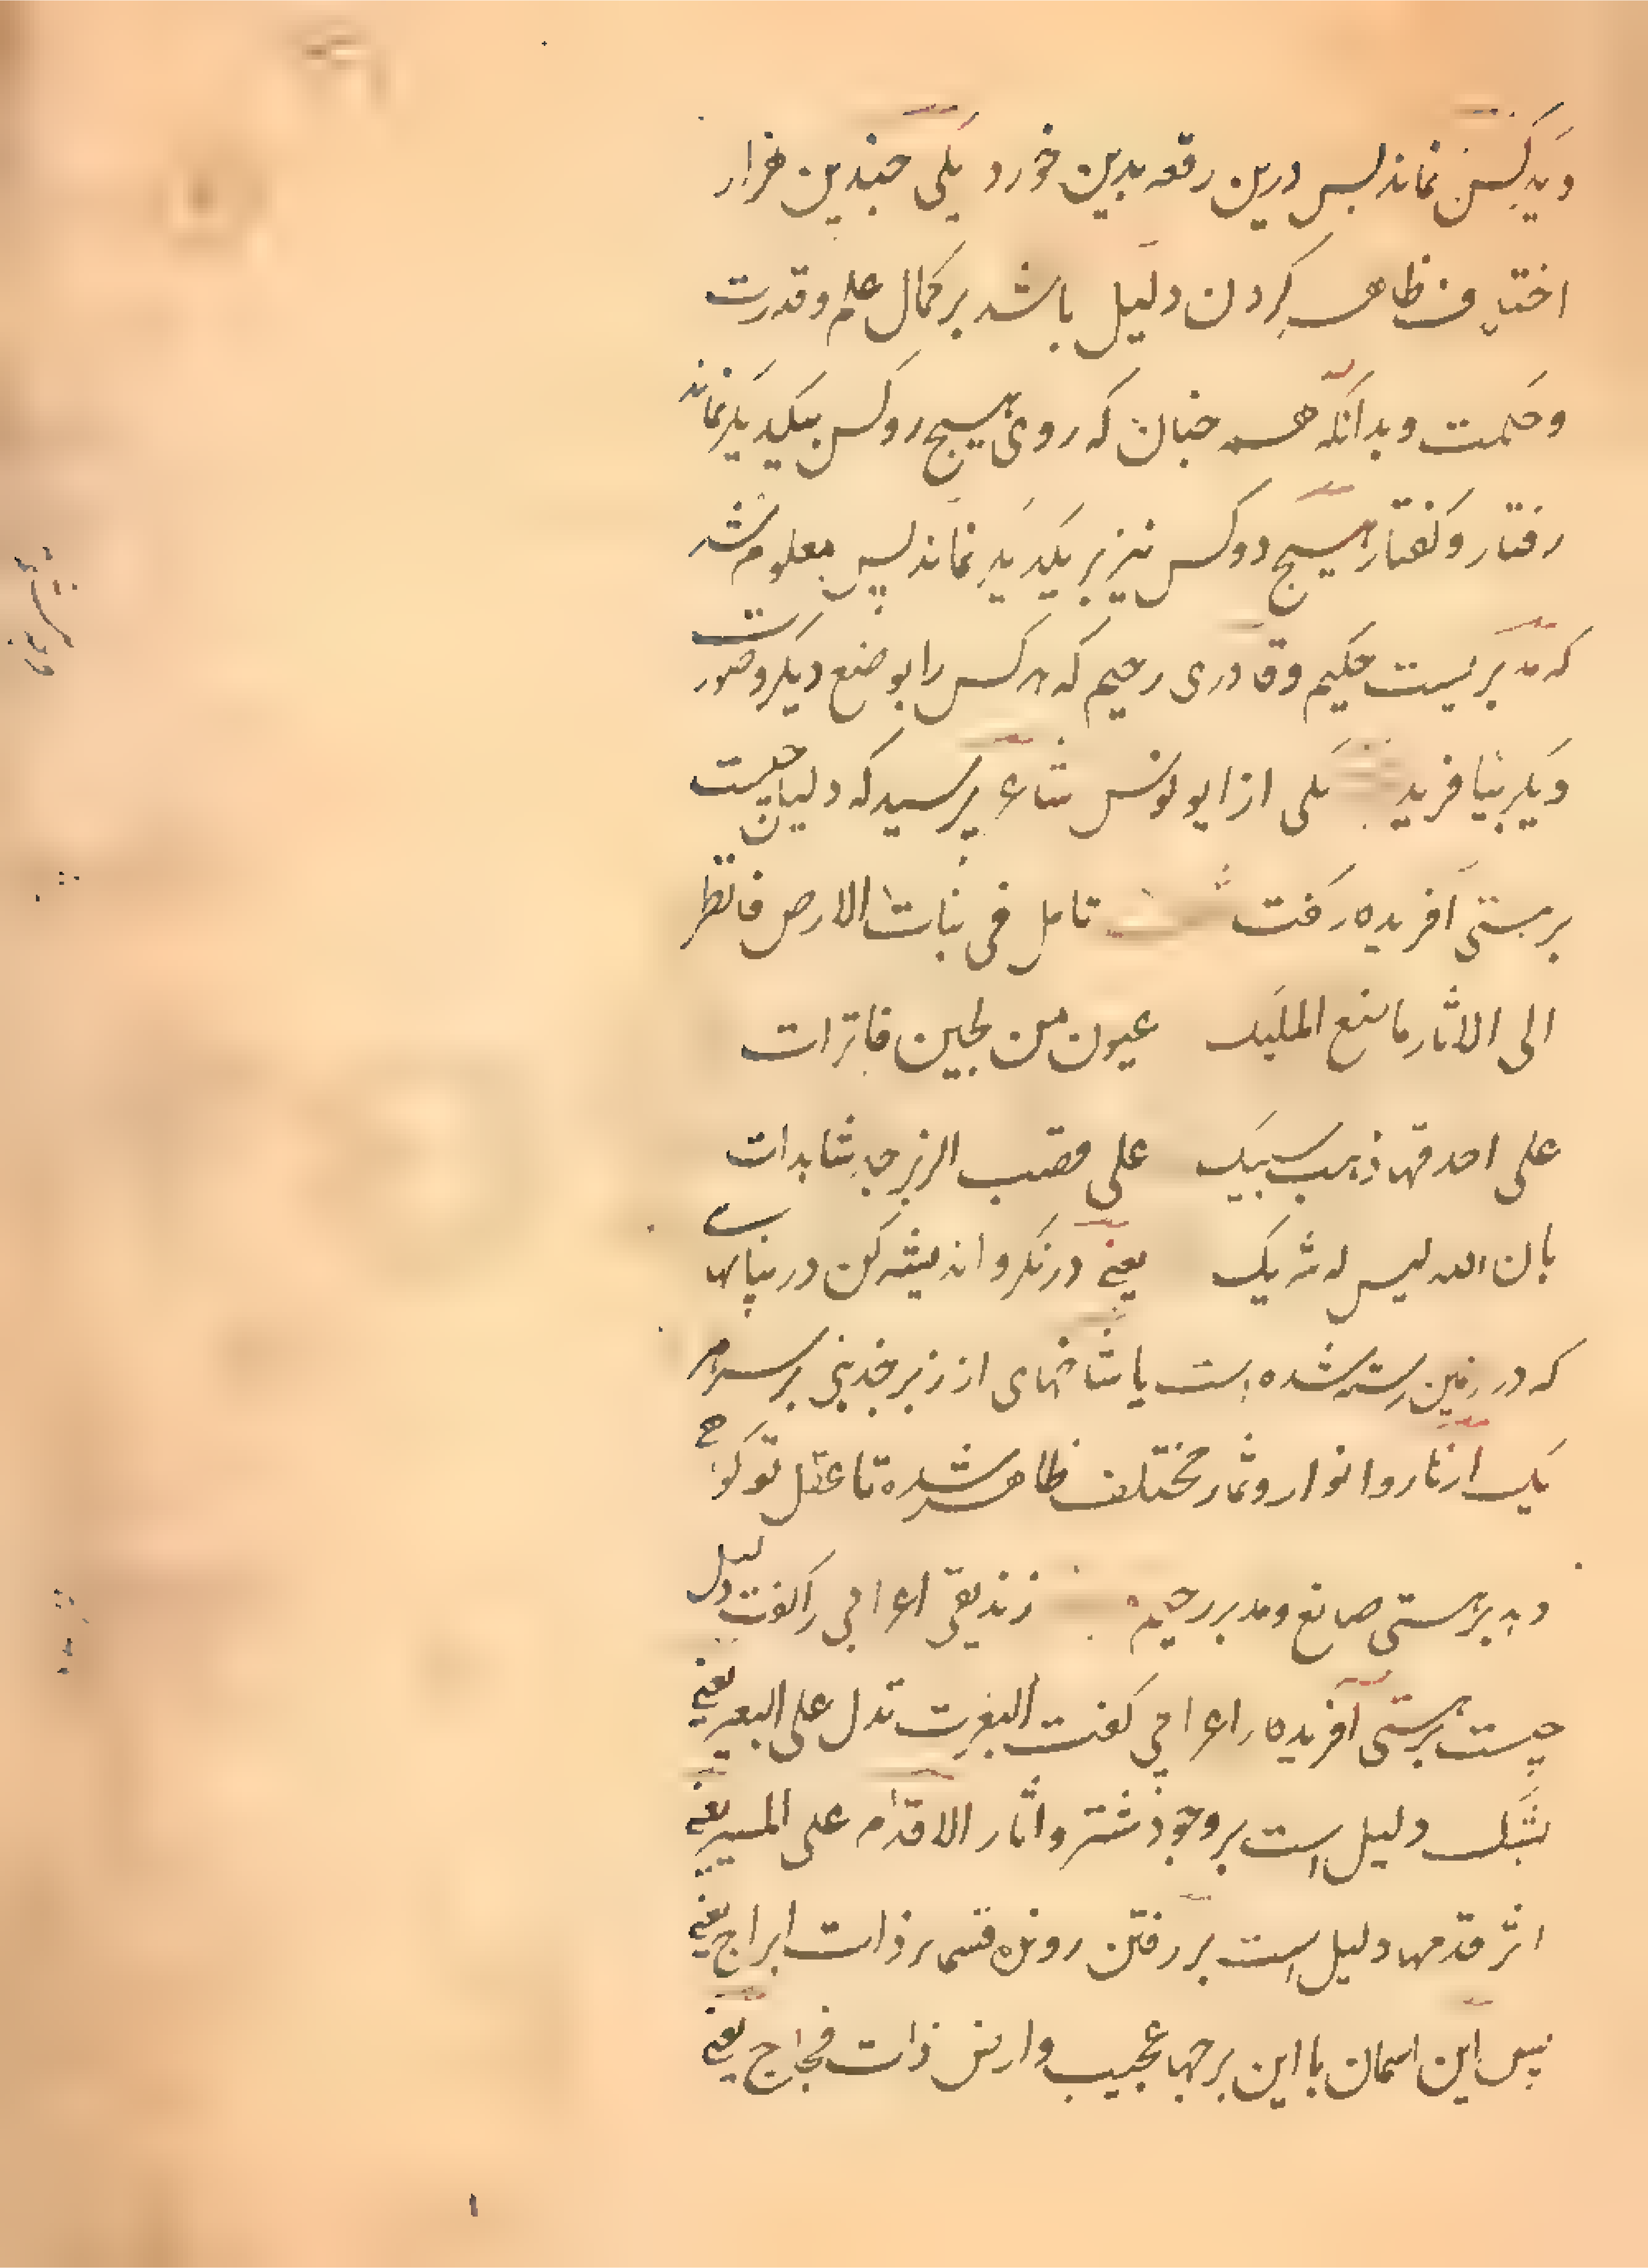 دیکر کس نماند پس درین رقعه بدین خورد یکی چندین هزار
اختلاف ظاهر کردن دلیل باشد بر کمال علم و قدرت
و حکمت و بدانکه همه چنان که روی هیچ دو کس بیکدیکر نماند
رفتار و کفتار هیچ دو کس نیز بر یکدیکر نماند پس معلوم شد
که مدبریست حکیم و قادری رحیم که هر کس را بوضع دیکر و صورت
دیکر بیافرید یکی از ابو نواس شاعر پرسید که دلیل چیست
بر هستی آفریده کفت تامل فی نبات الارض فانظر
الی الاثار ما صنع الملیک عیون من لجین فاترات
علی احداقها ذهب سبیک علی قصب الزبرجد شاهدات
بان الله لیس له شریک یعنی درنکر و اندیشه کن در نباتهای
که در زمین رسته شده است با شاخهای از زبرجد بینی بر سر هر
یک ازهار و انوار و ثمار مختلف ظاهر شده تا عقل تو کواهی
دهد بر هستی صانع و مدبر رحیم زندیقی اعرابی را کفت دلیل
چیست بر هستی آفریدکار اعرابی کفت البعرت تدل علی البعیر یعنی
پشک دلیل است بر وجود شتر و اثار الاقدام علی المسیر یعنی
اثر قدمها دلیل است بر رفتن رونده فسماء ذات ابراج یعنی
پس این اسمان با این برجها عجیب و ارض ذات فجاج یعنی